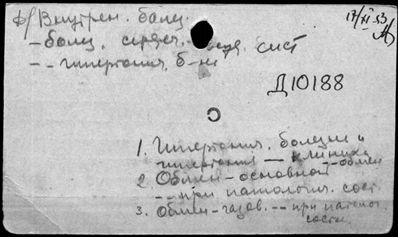 ф/ Внутрен. болез.
17/XI 53
- болез. сердеч. - сист
- - гипертония. б-нь
Д10188
1. Гипертония. болезнь и
гипертония — клиника
-- обмен
2. Обмен - основной
-- при патология. сост.
3. Обмен - газов. -- при патолог
состен.